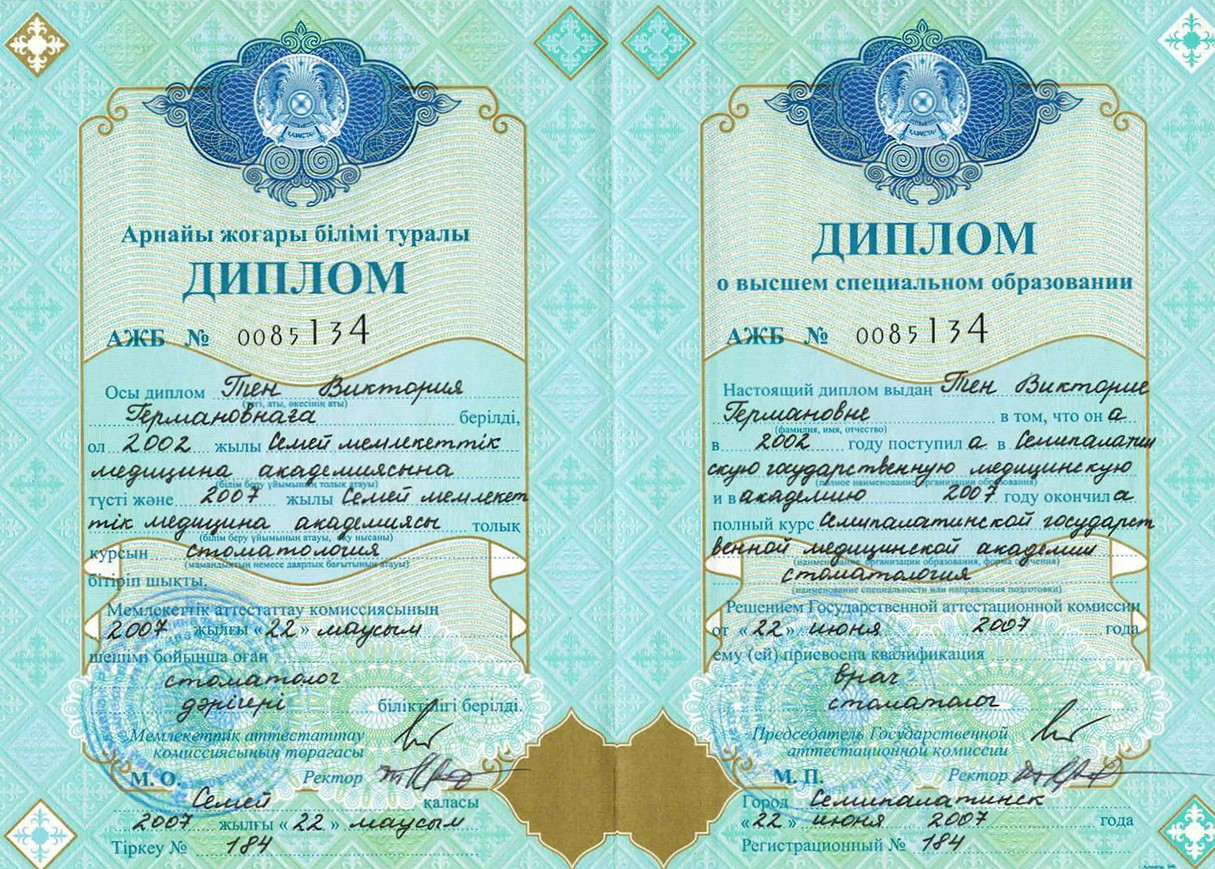 ҚАЗАҚСТАН
Арнайы жоғары білімі туралы
ДИПЛОМ
АЖБ № 0085134
Осы диплом Тен Виктория
(тегі, аты, әкесінің аты)
Германовнаға берілді,
ол 2002 жылы Семей мемлекеттік
медицина академиясына
(білім беру ұйымының толық атауы)
түсті және 2007 жылы Семей мемлекет
тік медицина академиясы толық
(білім беру ұйымының атауы, оқу нысаны)
курсын стоматология
(мамандықтың немесе даярлық бағытының атауы)
бітіріп шықты.
Мемлекеттік аттестаттау комиссиясының
2007 жылғы «22» маусым
шешімі бойынша оған
стоматолог
дәрігері біліктілігі берілді.
Мемлекеттік аттестаттау
комиссиясының төрағасы
М. О. Ректор
Семей қаласы
2007 жылғы «22» маусым
Тіркеу № 184
ҚАЗАҚСТАН
ДИПЛОМ
о высшем специальном образовании
АЖБ № 0085134
Настоящий диплом выдан Тен Виктории
Германовне в том, что он а
(фамилия, имя, отчество)
в 2002 году поступил а в Семипалатин
скую государственную медицинскую
(полное наименование организации образования)
и в академию 2007 году окончил а
полный курс Семипалатинской государст
венной медицинской академии
(наименование организации образования, форма обучения)
стоматология
(наименование специальности или направления подготовки)
Решением Государственной аттестационной комиссии
от «22» июня 2007 года
ему (ей) присвоена квалификация
врач
стоматолог
Председатель Государственной
аттестационной комиссии
М. П. Ректор
Город Семипалатинск
«22» июня 2007 года
Регистрационный № 184